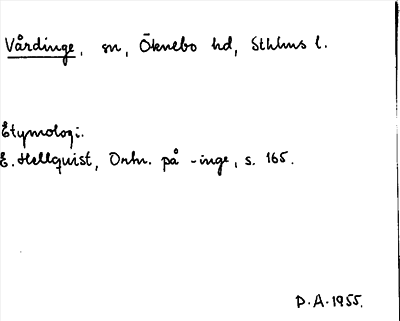 Vårdinge, sn, Öknebo hd, Sthlms l.
Etymologi.
E. Hellquist, Ortn. på -inge, s. 165.
D.A. 1955.